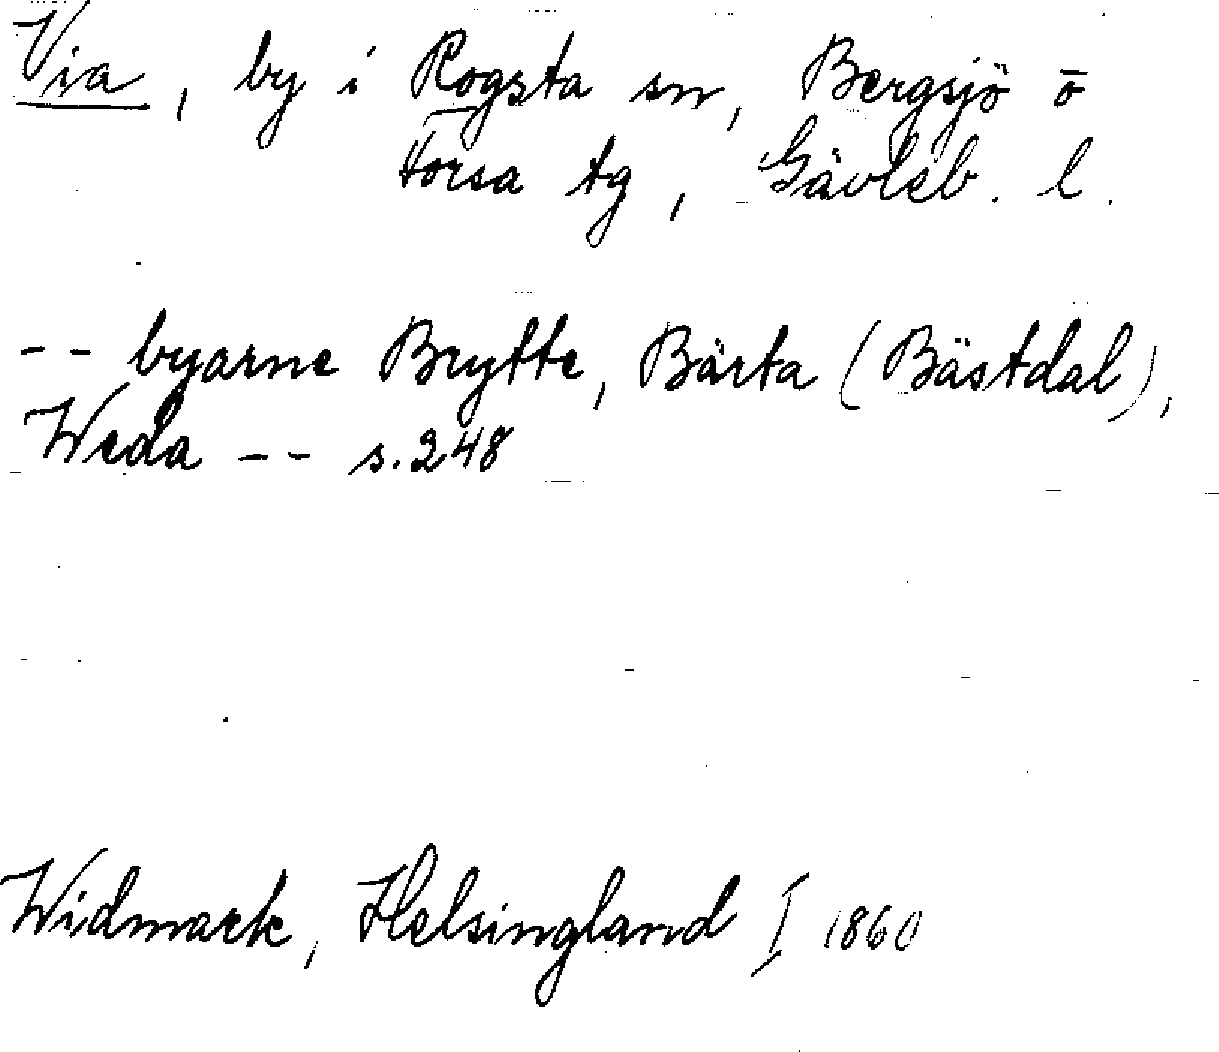 Via, by i Rogsta sn, Bergsjö o
Forsa tg, Gävleb. l.
-- byarne Brytte, Bärta (Bästdal),
Weda -- s. 248
Widmark, Helsingland I 1860